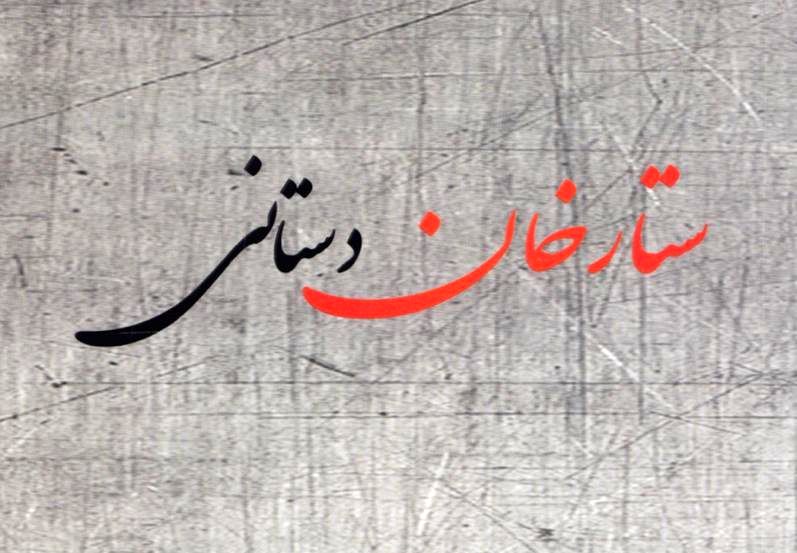 ستارخان دستانی